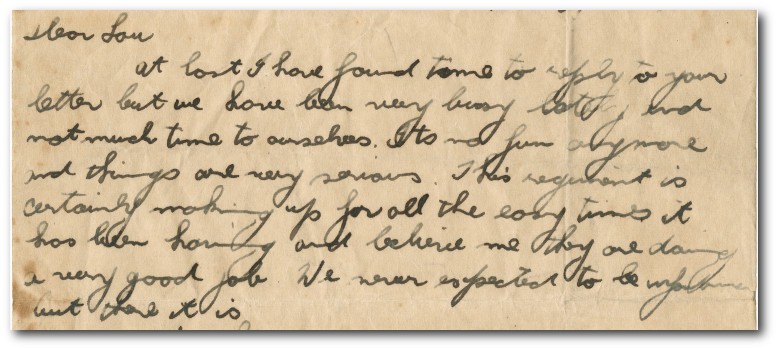 Dear Lou
At last I have found time to reply to your
letter but we have been very busy lately and
not much time to ourselves. Its no fun anymore
and things are very serious. This regiment is
certainly making up for all the easy times it
has been having and believe me they are doing
a very good job We never expected to be
but there it is